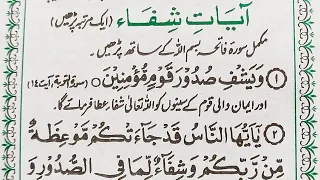 آیاتِ شِفَاء (ایک مرتبہ پڑھیں)
مکمل سورۃ فاتحہ بسم اللہ کے ساتھ پڑھیں۔
① وَيَشْفِ صُدُوْرَ قَوْمٍ مُّؤْمِنِيْنَ ○ (سورۃ التوبۃ، آیت ۱۴)
اور ایمان والی قوم کے سینوں کو اللہ تعالیٰ شفاء عطا فرمائے گا
② يٰۤاَيُّهَا النَّاسُ قَدْ جَآءَتْكُمْ مَّوْعِظَةٌ
مِّنْ رَّبِّكُمْ وَشِفَآءٌ لِّمَا فِى الصُّدُوْرِ وَ